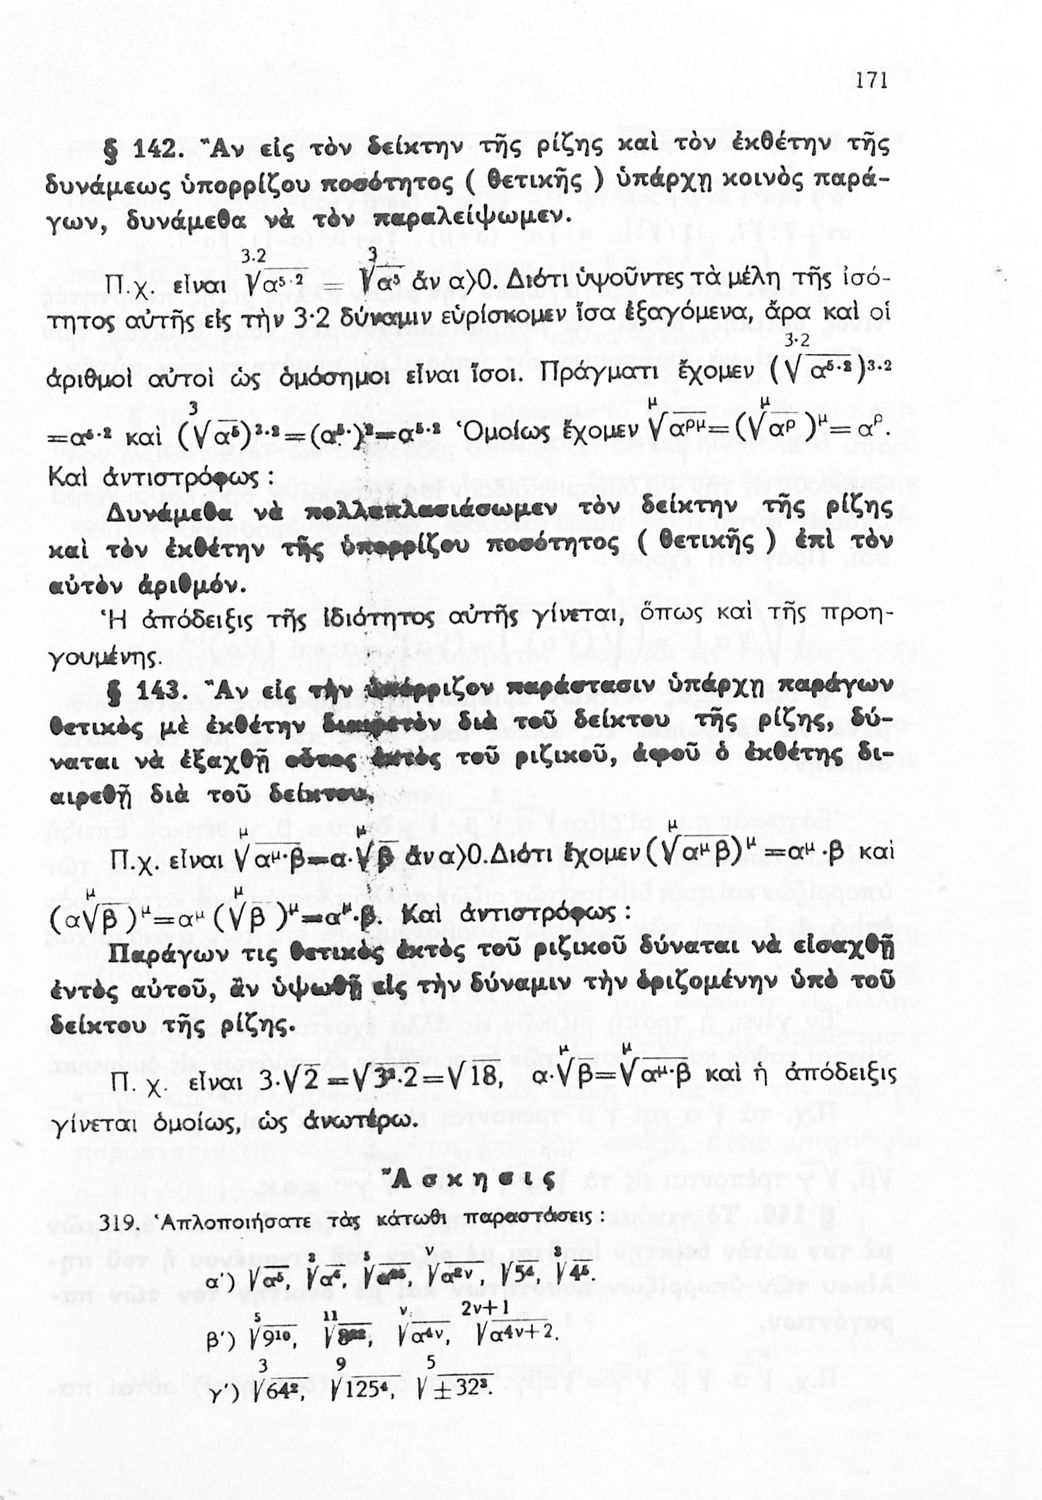 171
§ 142. Ἂν εἰς τὸν δείκτην τῆς ρίζης καὶ τὸν ἐκθέτην τῆς
δυνάμεως ὑπορρίζου ποσότητος ( θετικῆς ) ὑπάρχῃ κοινὸς παρά-
γων, δυνάμεθα νὰ τὸν παραλείψωμεν.
Π.χ. εἶναι ³·²√α⁵·² = ³√α⁵ ἄν α⟩0. Διότι ὑψοῦντες τὰ μέλη τῆς ἰσό-
τητος αὐτῆς εἰς τὴν 3·2 δύναμιν εὑρίσκομεν ἴσα ἐξαγόμενα, ἄρα καὶ οἱ
ἀριθμοὶ αὐτοὶ ὡς ὁμόσημοι εἶναι ἴσοι. Πράγματι ἔχομεν (³·²√α⁵·²)³·²
=α⁵·² καὶ (³√α⁵)³·²=(α⁵·)²=α⁵·² Ὁμοίως ἔχομεν ᵘ√αᵖᵘ=(ᵘ√αᵖ )ᵘ=αᵖ.
Καὶ ἀντιστρόφως :
Δυνάμεθα νὰ πολλαπλασιάσωμεν τὸν δείκτην τῆς ρίζης
καὶ τὸν ἐκθέτην τῆς ὑπορρίζου ποσότητος ( θετικῆς ) ἐπὶ τὸν
αὐτὸν ἀριθμόν.
Ἡ ἀπόδειξις τῆς ἰδιότητος αὐτῆς γίνεται, ὅπως καὶ τῆς προη-
γουμένης.
§ 143. Ἂν εἰς τὴν ὑπόρριζον παράστασιν ὑπάρχῃ παράγων
θετικὸς μὲ ἐκθέτην διαιρετὸν διὰ τοῦ δείκτου τῆς ρίζης, δύ-
ναται νὰ ἐξαχθῇ οὗτος ἐκτὸς τοῦ ριζικοῦ, ἀφοῦ ὁ ἐκθέτης δι-
αιρεθῇ διὰ τοῦ δείκτου.
Π.χ. εἶναι ᵘ√αᵘ·β=α·ᵘ√β ἄν α⟩0.Διότι ἔχομεν (ᵘ√αᵘβ)ᵘ =αᵘ·β καὶ
(αᵘ√β )ᵘ=αᵘ (ᵘ√β )ᵘ=αᵘ·β. Καὶ ἀντιστρόφως :
Παράγων τις θετικὸς ἐκτὸς τοῦ ριζικοῦ δύναται νὰ εἰσαχθῇ
ἐντὸς αὐτοῦ, ἂν ὑψωθῇ εἰς τὴν δύναμιν τὴν ὁριζομένην ὑπὸ τοῦ
δείκτου τῆς ρίζης.
Π. χ. εἶναι 3·√2 =√3²·2=√18, α·ᵘ√β=ᵘ√αᵘ·β καὶ ἡ ἀπόδειξις
γίνεται ὁμοίως, ὡς ἀνωτέρω.
Ἄσκησις
319. Ἁπλοποιήσατε τὰς κάτωθι παραστάσεις :
α΄) √α⁵, √α⁶, √α²⁵, ᵛ√α²ᵛ, √5⁴, √4⁵.
β΄) ⁵√9¹⁰, ¹¹√8²², ᵛ√α⁴ᵛ, ²ᵛ⁺¹√α⁴ᵛ⁺².
γ΄) ³√64², ⁹√125⁴, ⁵√±32³.